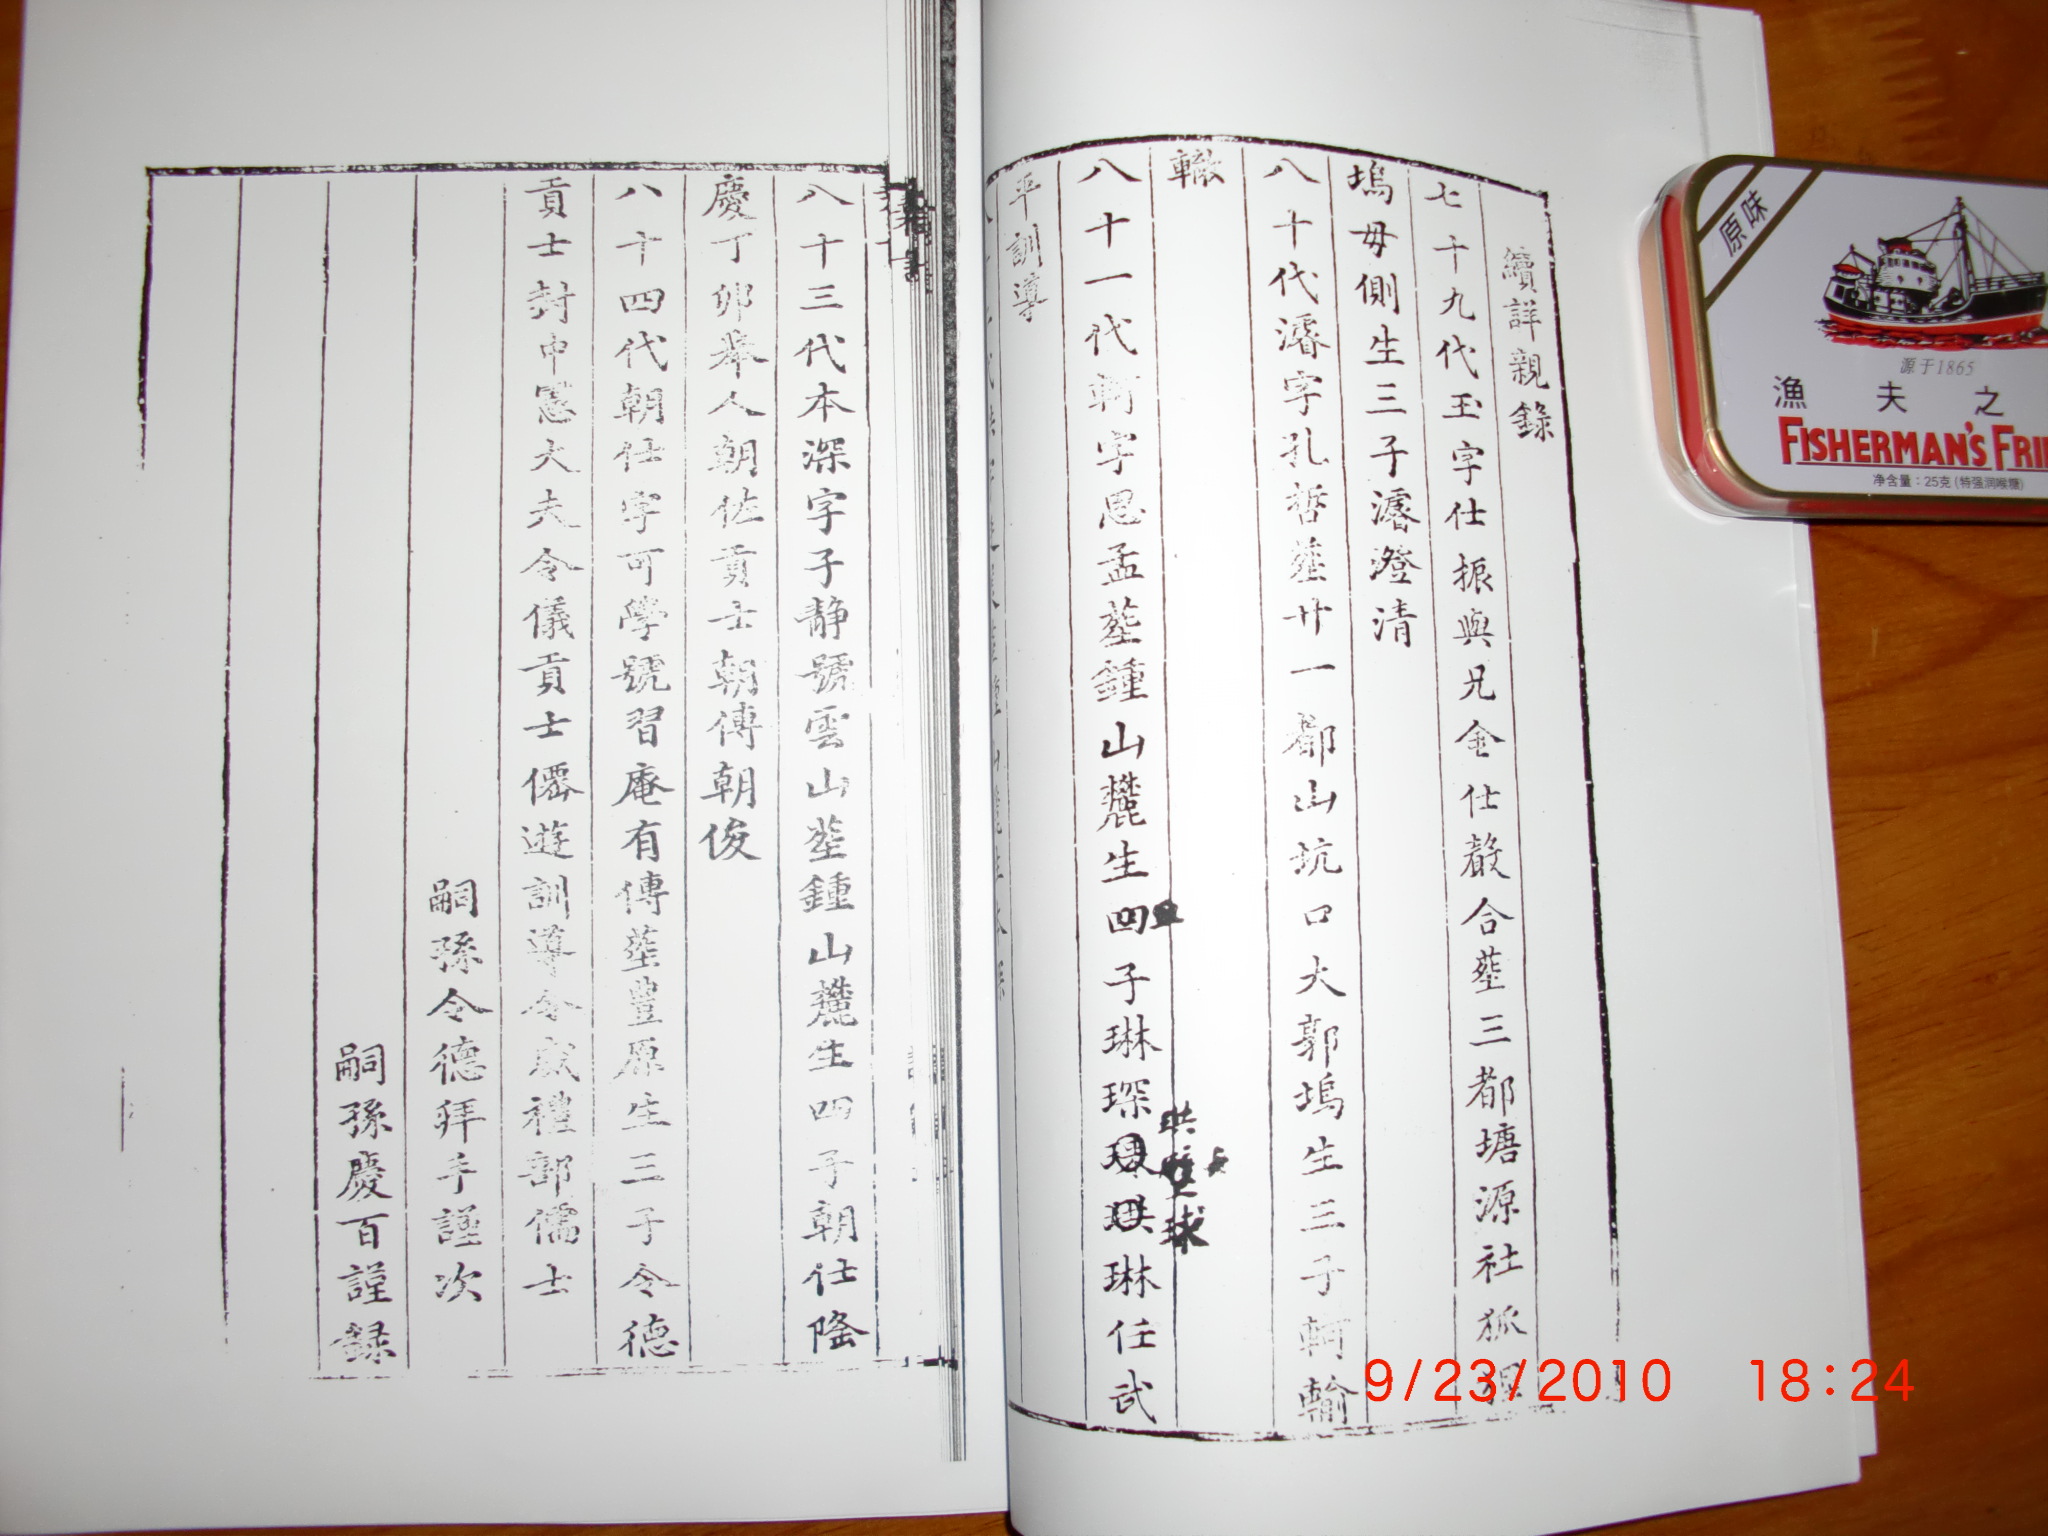 續詳親錄
七十九代玉字仕振與兄金仕嚴合塟三都塘源社狐狸
塢毋側生三子濬澄清
八十代濬字孔哲塟廿一都山坑口大郭塢生三子軻輸
轍
八十一代軻字思孟塟鍾山麓生四子琳琛琳任武
珙
球
平訓導
八十三代本深字子靜號雲山塟鍾山麓生四子朝仕隆
慶丁卯舉人朝佐貢士朝傅朝俊
八十四代朝仕字可學號習庵有傳塟豊原生三子令德
貢士封中憲大夫令儀貢士僊遊訓導令威禮部儒士
嗣孫令德拜手謹次
嗣孫慶百謹録
原味
源于1865
漁夫之
FISHERMAN'S FRI
净含量：25克(特强润喉糖)
9/23/2010 18:24